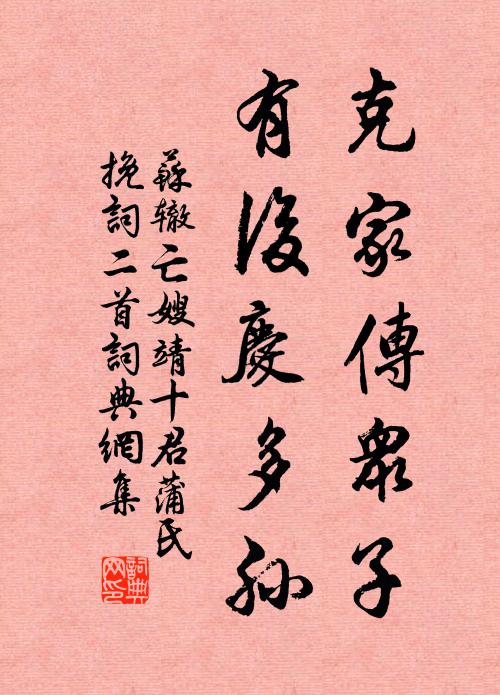 克家傳衆子
有後慶多孙
蘇辙亡嫂靖十君蒲氏
挽詞二首詞典網集
詞典网印